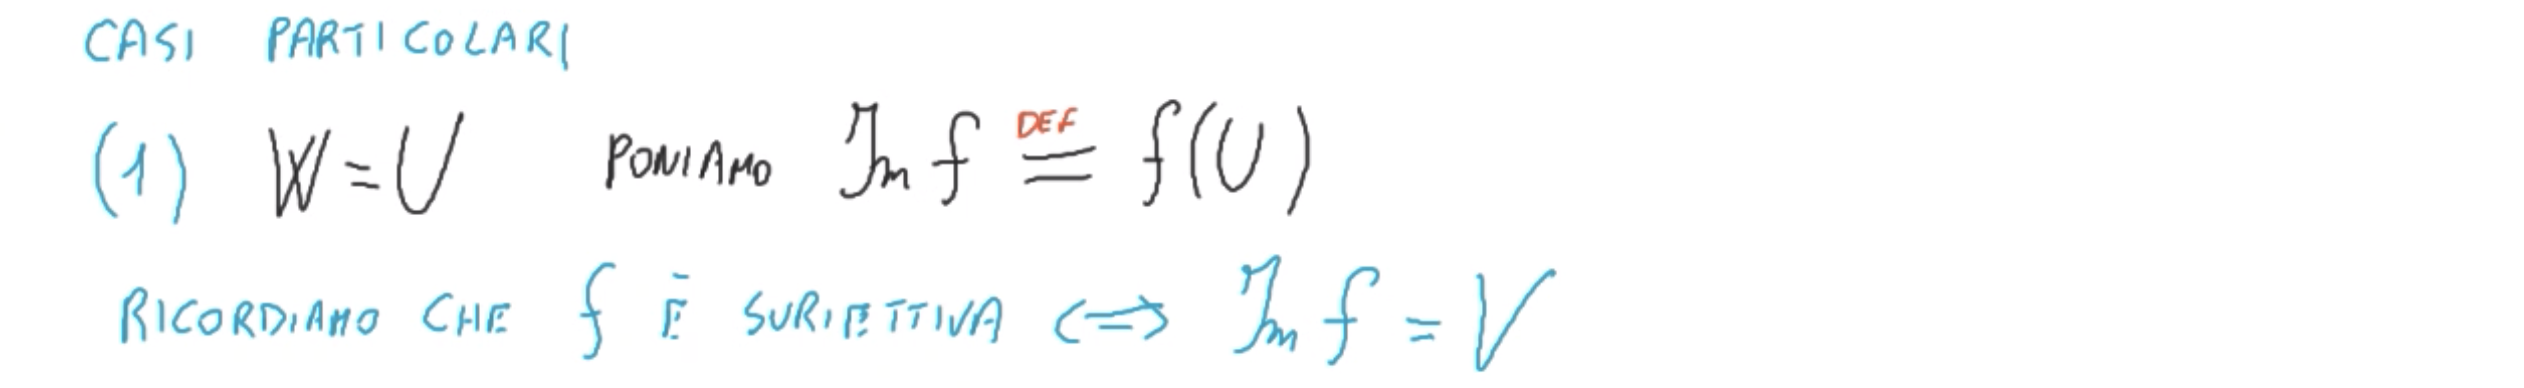 CASI PARTICOLARI
(1) W = U PONIAMO Im f =DEF f(U)
RICORDIAMO CHE f È SURIETTIVA <=> Im f = V